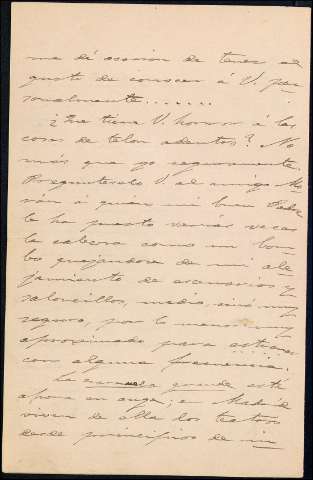 me dé ocasión de tener el
gusto de conocer á V. per
sonalmente.......
¿Que tiene V. horror á las
cosas de telon adentro? No
más que yo seguramente.
Pregúnteselo V. al amigo Mo
rán á quien mi buen Pedro
le ha puesto varias veces
la cabeza como un bom
bo quejandose de mi ale
jamiento de escenarios y
saloncillos, medio, sinó muy
seguro, por lo menos muy
aproximado para estrenar
con alguna frecuencia.
La zarzuela grande está
ahora en auge; en Madrid
viven de ella los teatros
desde principios de in